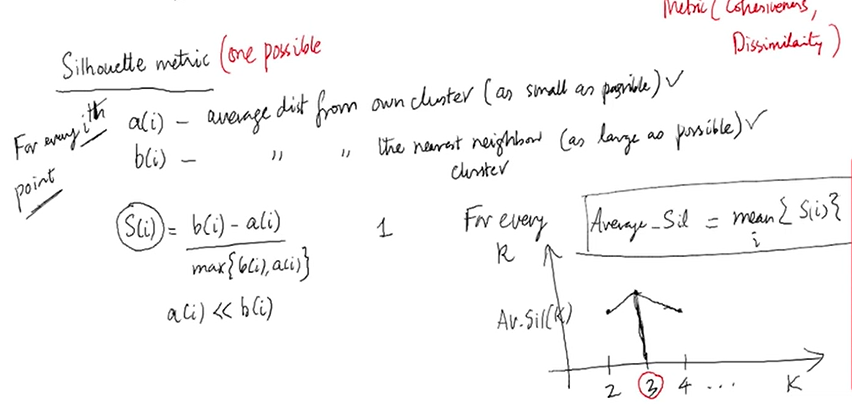 Metric (Cohesiveness,
Dissimilaity)
Silhouette metric (one possible
For every ith
point
a(i) – average dist from own cluster (as small as possible) ✓
b(i) – " " the nearest neighbour (as large as possible) ✓
cluster
S(i) = b(i) - a(i)
max{b(i), a(i)}
1
a(i) << b(i)
For every
K
Average_Sil = mean{S(i)}
i
Av.Sil(K)
2 3 4 ... K